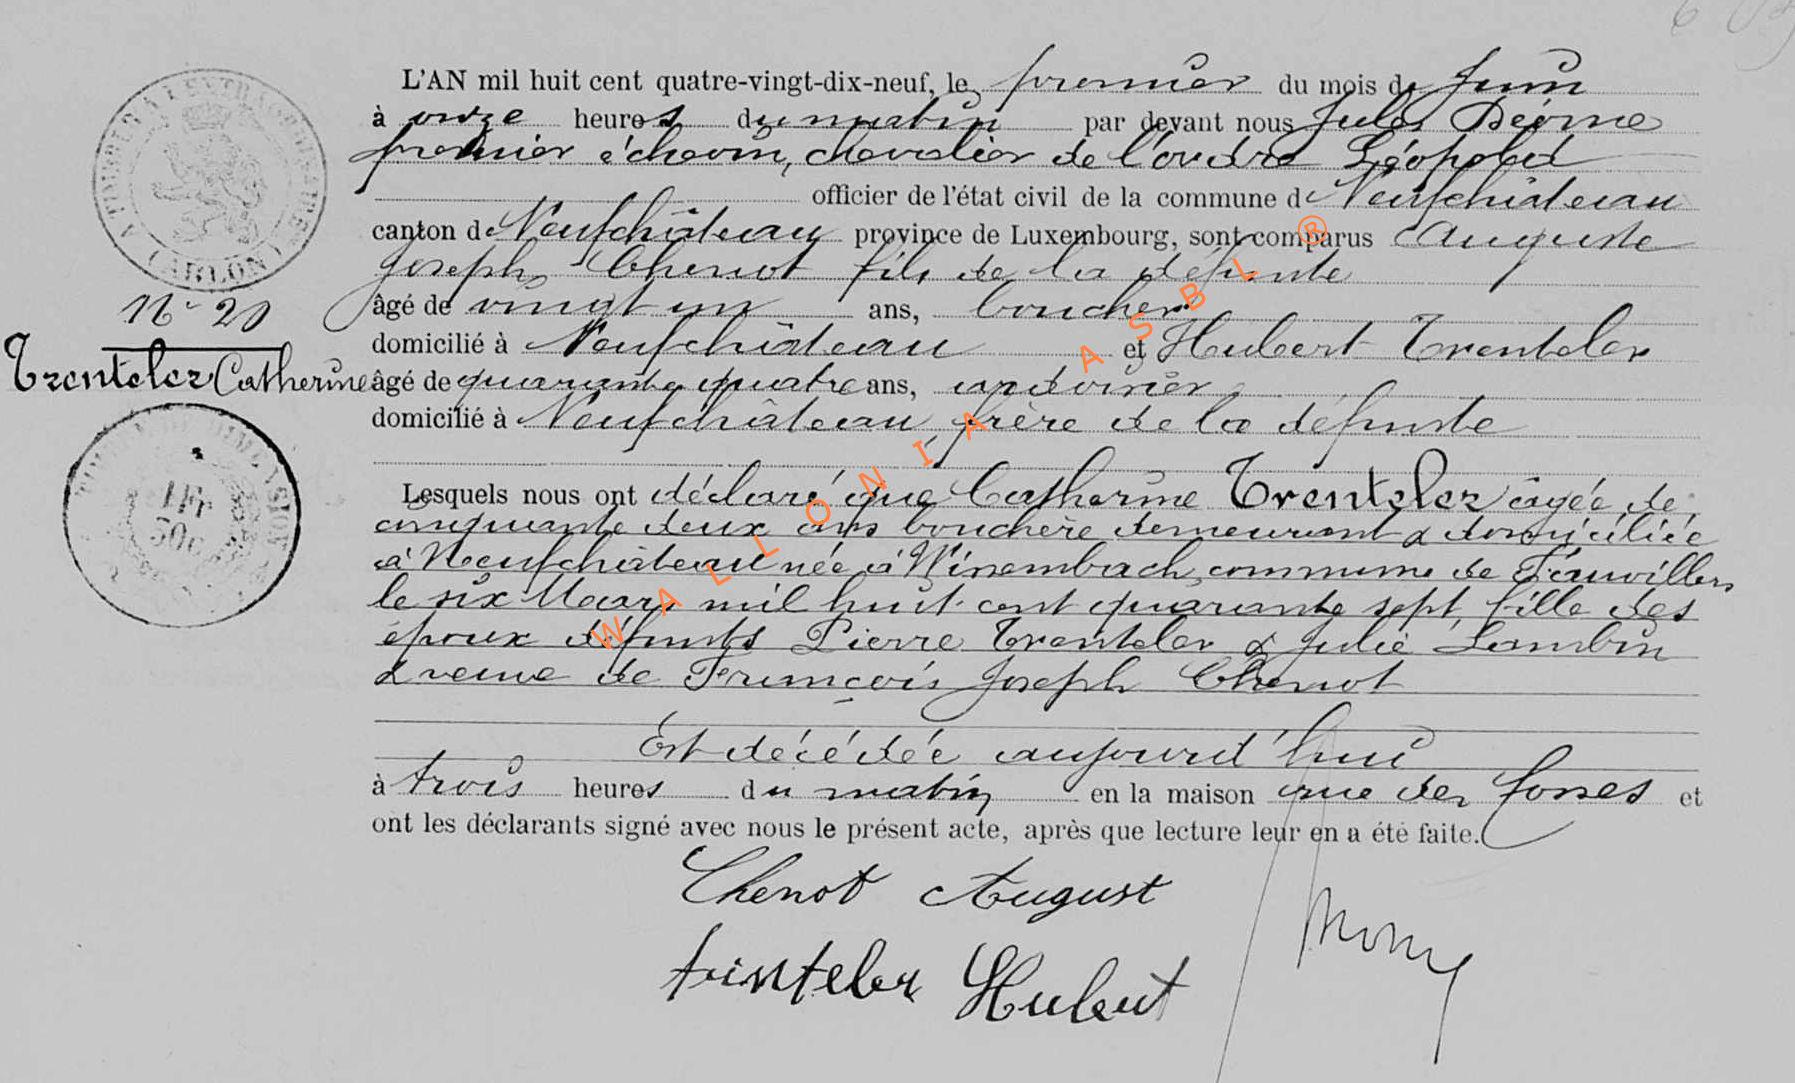 L'AN mil huit cent quatre-vingt-dix-neuf, le premier du mois de Juin
à onze heures du matin par devant nous Jules
premier échevin, chevalier de l'ordre Léopold
officier de l'état civil de la commune de Neufchâteau
canton de Neufchâteau province de Luxembourg, sont comparus Auguste
Joseph Chenot fils de la défunte
N° 20
âgé de vingt un ans, boucher
domicilié à Neufchâteau et Hubert Trenteler
Trenteler Catherine
âgé de quarante quatre ans, ardoisier
domicilié à Neufchâteau frère de la défunte
1 Fr
50c
Lesquels nous ont déclaré que Catherine Trenteler âgée de
cinquante deux ans bouchère demeurant & domiciliée
à Neufchâteau née à Winembach, commune de Fauvillers
le six Mars mil huit cent quarante sept, fille des
époux défunts Pierre Trenteler & Julie Lambin
& veuve de François Joseph Chenot
Est décédée aujourd'hui
à trois heures du matin en la maison rue des fosses et
ont les déclarants signé avec nous le présent acte, après que lecture leur en a été faite.
Chenot August
trinteler Hubert
WALLONIA ASBL ®
ARLON